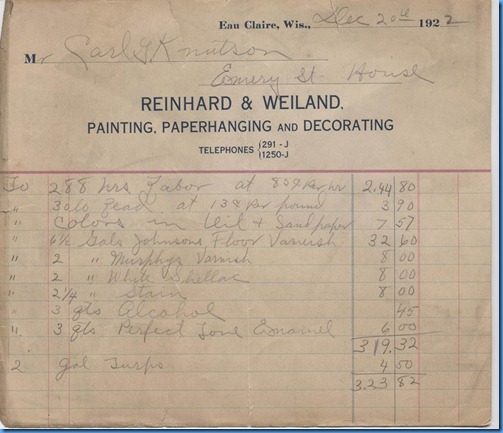 Eau Claire, Wis., Dec 20th 1922
Mr Carl G. Knutson
Emery St House
REINHARD & WEILAND,
PAINTING, PAPERHANGING AND DECORATING
TELEPHONES { 291 - J
1250-J
To 288 hrs Labor at 85¢ per hr 244 80
" 30 lb Lead at 13¢ per pound 3 90
" Colors in Oil & Sand paper 7 57
" 6½ Gals Johnsons Floor Varnish 32 60
" 2 " Murphys Varnish 8 00
" 2 " White Shellac 8 00
" 2¼ " Stain 8 00
" 3 qts Alcohol 45
" 3 qts Perfect Tone Enamel 6 00
319.32
2 gal Turps 4 50
323 82